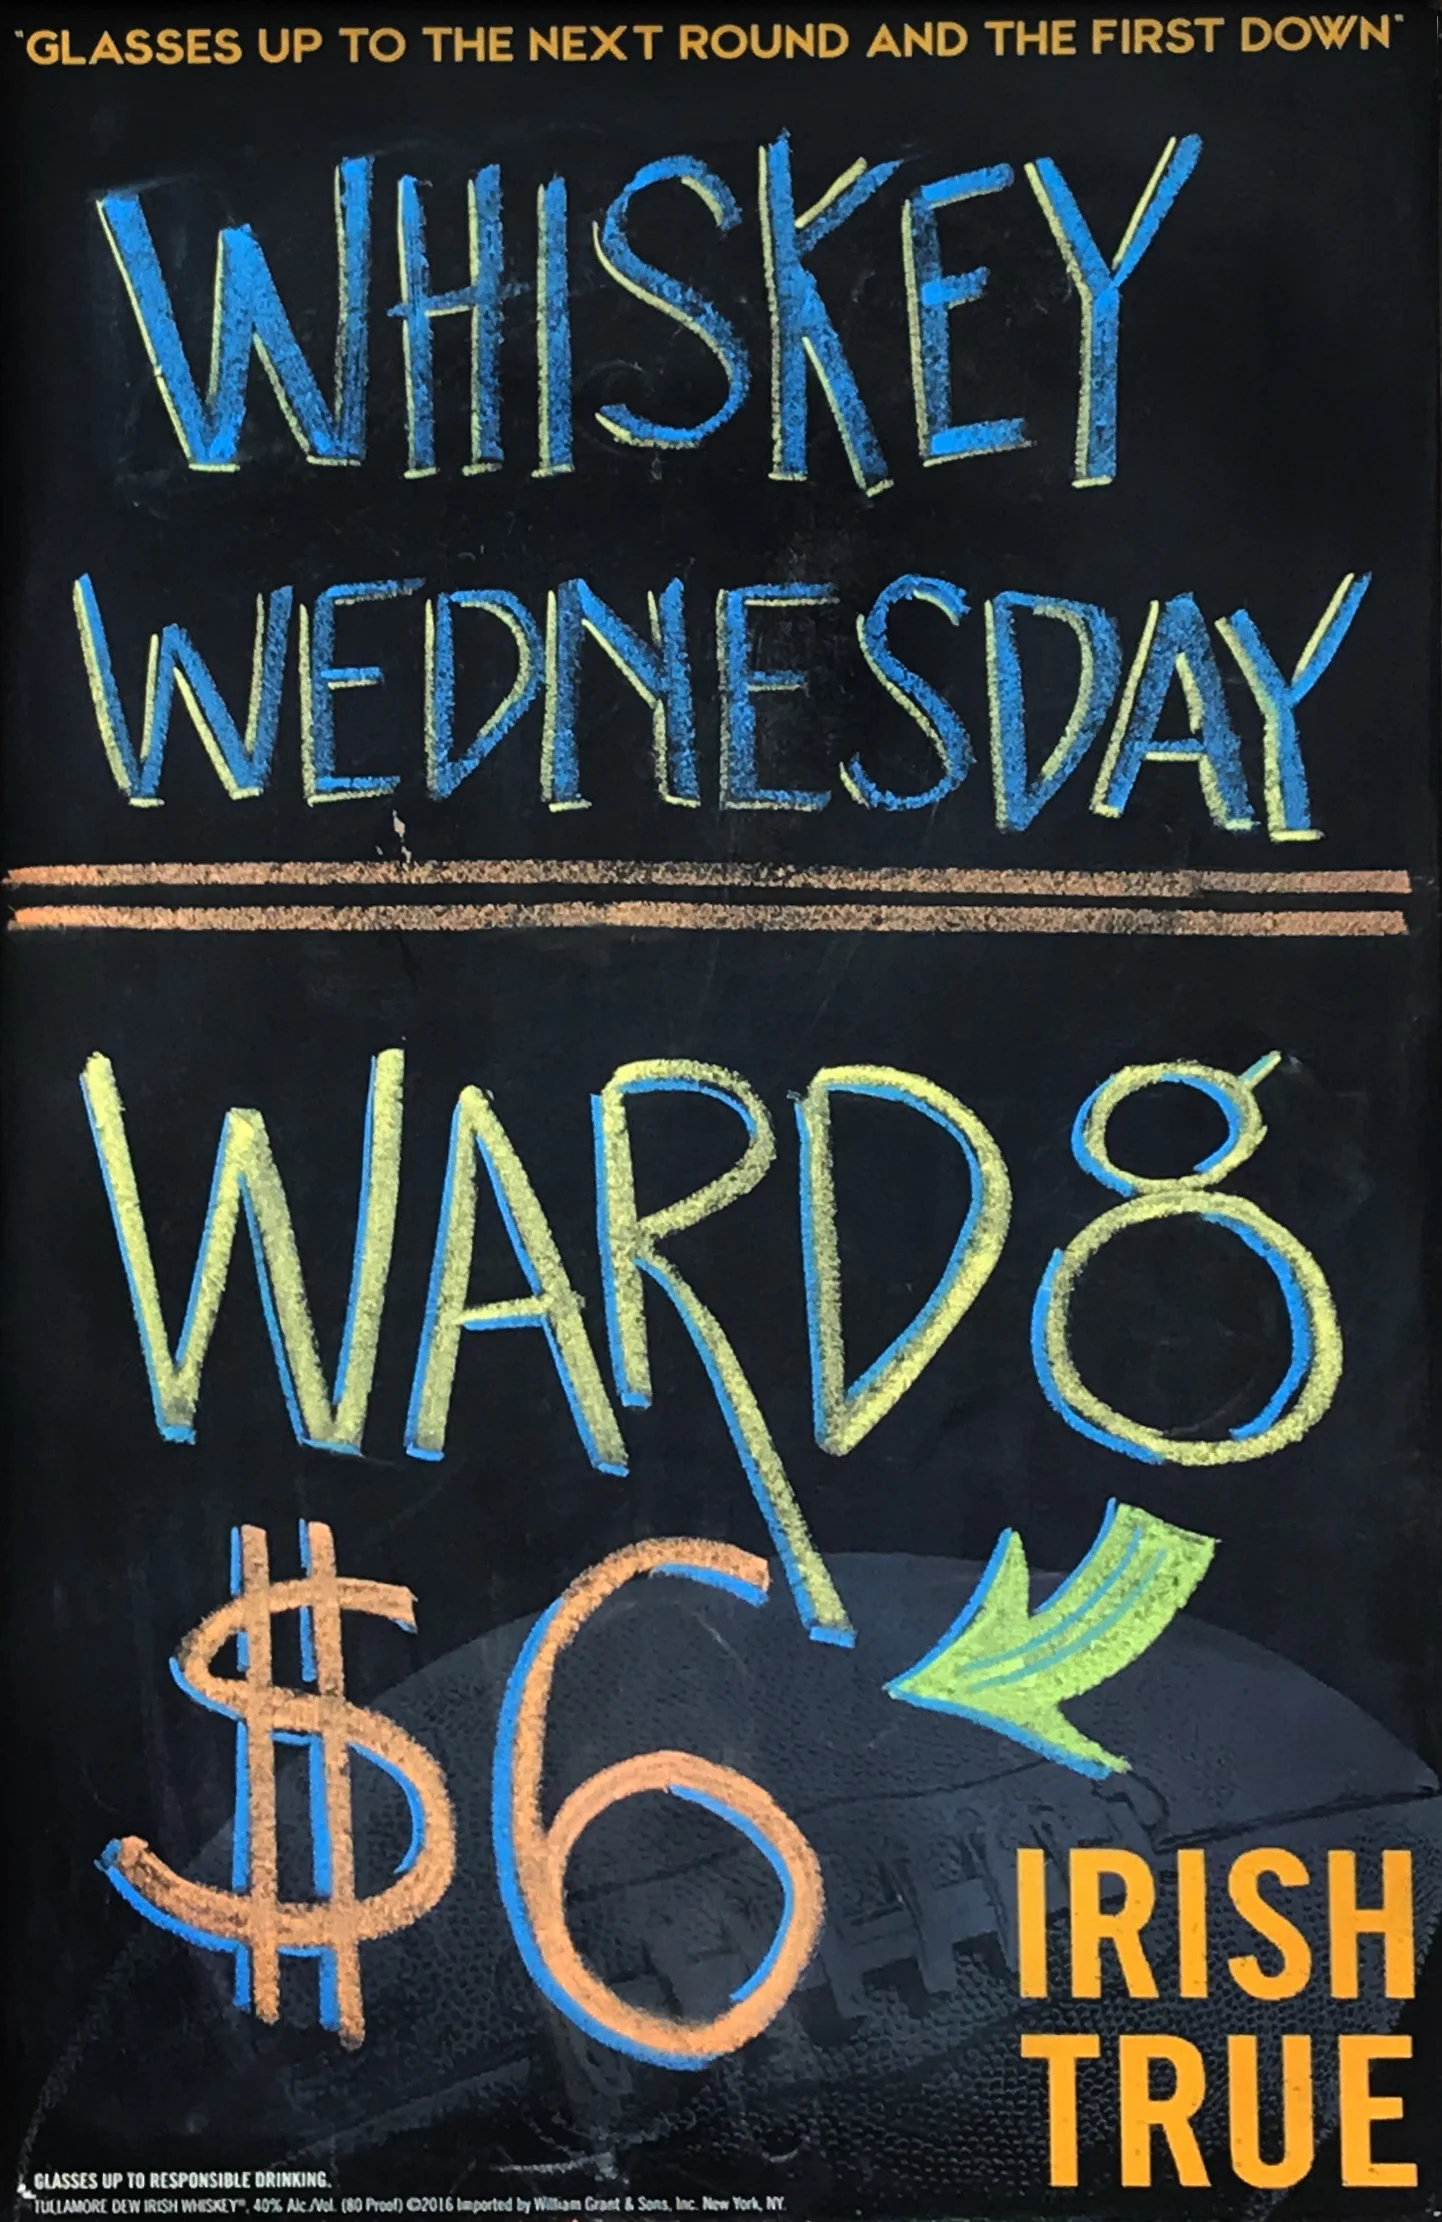 "GLASSES UP TO THE NEXT ROUND AND THE FIRST DOWN"
WHISKEY
WEDNESDAY
WARD 8
$6
IRISH
TRUE
GLASSES UP TO RESPONSIBLE DRINKING.
TULLAMORE DEW IRISH WHISKEY®, 40% Alc./Vol. (80 Proof) ©2016 Imported by William Grant & Sons, Inc. New York, NY.